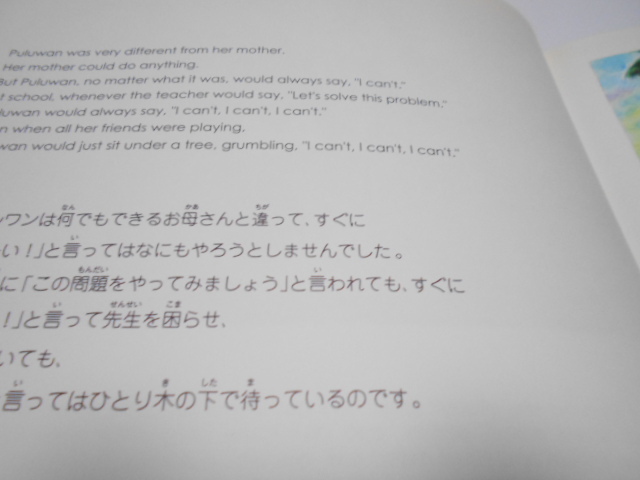 Puluwan was very different from her mother.
Her mother could do anything.
But Puluwan, no matter what it was, would always say, "I can't."
t school, whenever the teacher would say, "Let's solve this problem,"
luwan would always say, "I can't, I can't, I can't."
n when all her friends were playing,
wan would just sit under a tree, grumbling, "I can't, I can't, I can't."
ルワンは何でもできるお母さんと違って、すぐに
い！」と言ってはなにもやろうとしませんでした。
に「この問題をやってみましょう」と言われても、すぐに
！」と言って先生を困らせ、
いても、
と言ってはひとり木の下で待っているのです。